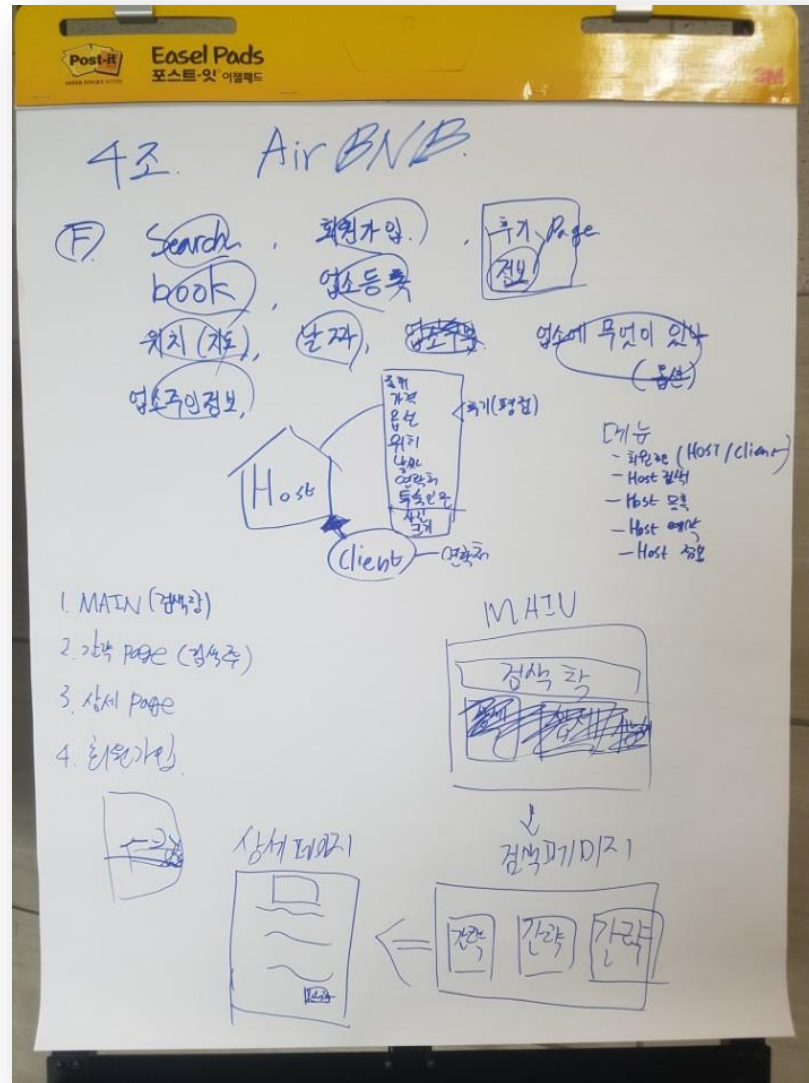 Post-it Easel Pads
포스트-잇 이젤패드
3M
4조. Air BNB.
(F) Search, 회원가입, 후기 Page
book, 업소등록 정보
위치 (지도), 날짜, 업소에 무엇이 있나
(옵션)
업소주인정보,
가격
옵션
위치
날짜
연락처
사진
크기
후기(평점)
Host
Client — 연락처
메뉴
- 회원 (HOST/Client)
- Host 검색
- Host 등록
- Host 예약
- Host 정보
1. MAIN (검색창)
2. 간략 page
3. 상세 page
4. 회원가입
MAIN
검색창
검색페이지
간략 간략 간략
상세페이지